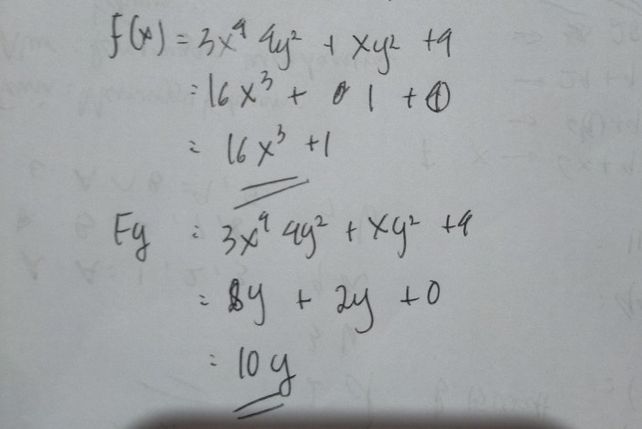 f(x) = 3x⁴ 4y² + xy² + 9
= 16x³ + 1 + 0
= 16x³ + 1
Fy = 3x⁴ 4y² + xy² + 9
= 8y + 2y + 0
= 10y